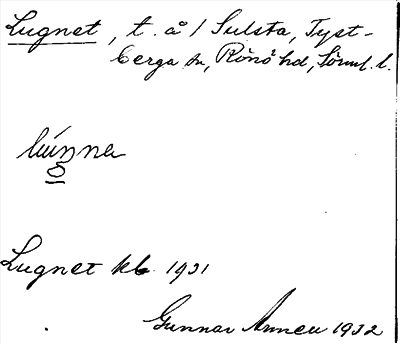 Lugnet, t. å / Sulsta, Tyst-
berga sn, Rönö hd, Sörml. l.
Lugnet kb 1931
Gunnar Anneu 1932